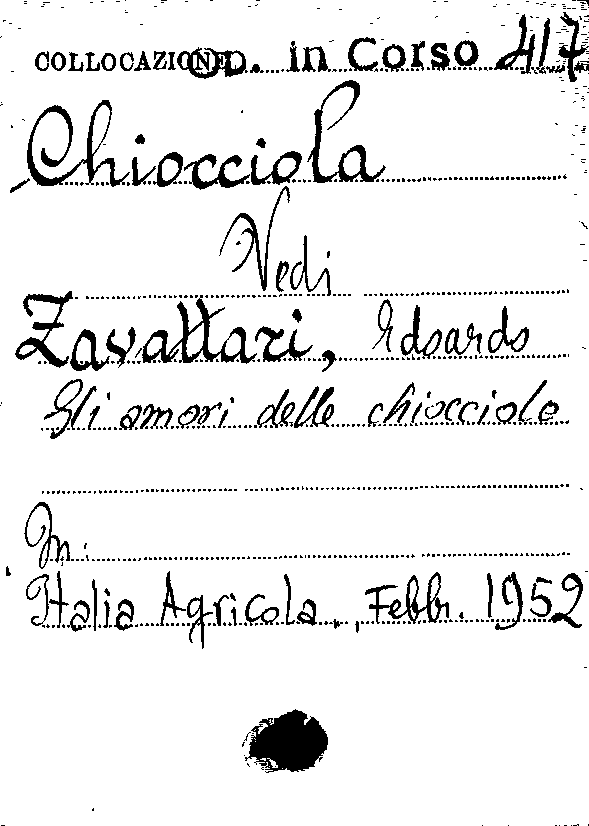 COLLOCAZIONE D. in Corso 417
Chiocciola
Vedi
Zavattari, Edoardo
Gli amori delle chiocciole
In:
Italia Agricola., Febbr. 1952